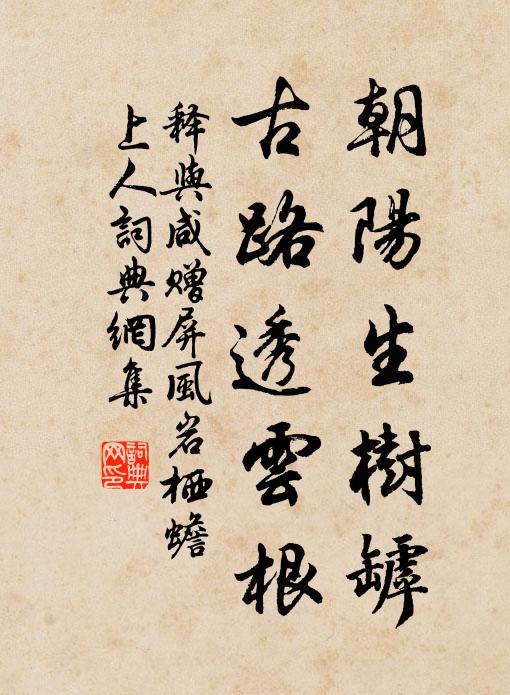 朝陽生樹罅
古路透雲根
释與咸赠屏風岩栖蟾
上人詞典網集
詞典网印